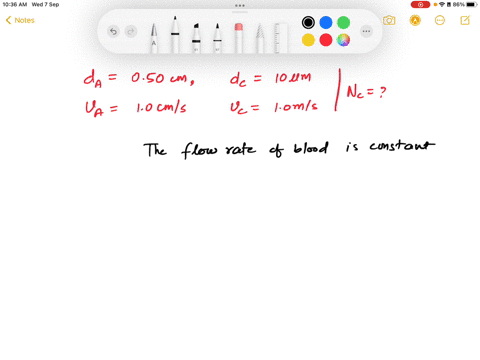 10:36 AM Wed 7 Sep
86%
Notes
d_A = 0.50 cm, d_C = 10 μm N_C = ?
v_A = 1.0 cm/s v_C = 1.0 m/s
The flow rate of blood is constant